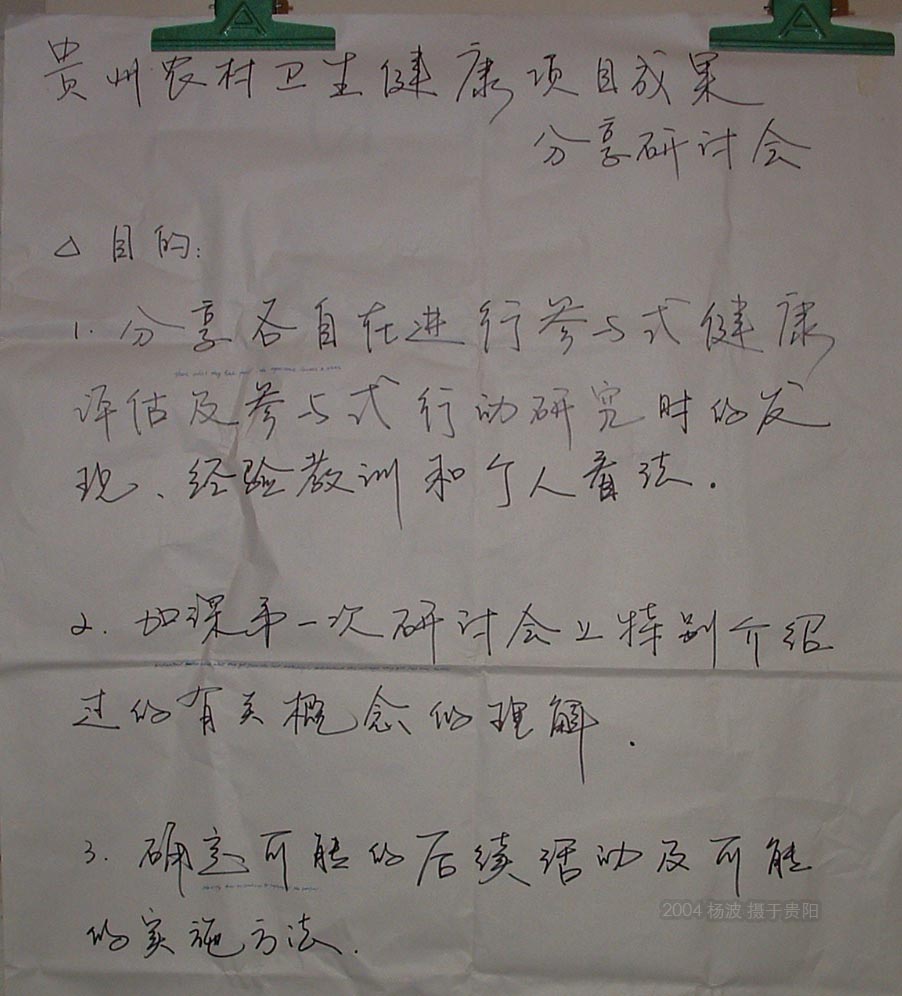 贵州农村卫生健康项目成果
分享研讨会
△目的:
1. 分享各自在进行参与式健康
评估及参与式行动研究时的发
现、经验教训和个人看法.
2. 加深第一次研讨会上特别介绍
过的有关概念的理解.
3. 确定可能的后续活动及可能
的实施方法.
2004 杨波 摄于贵阳